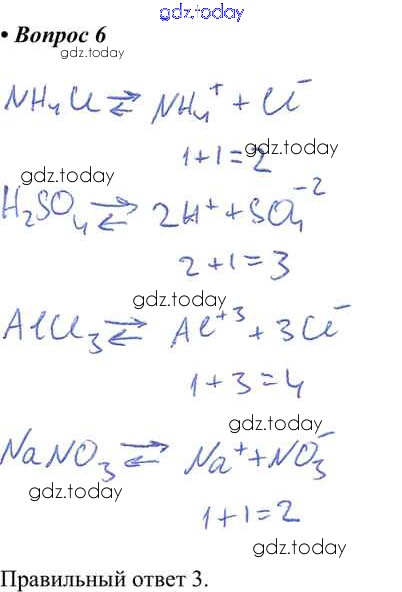 gdz.today
• Вопрос 6
gdz.today
NH₄Cl ⇄ NH₄⁺ + Cl⁻
gdz.today
1+1=2
gdz.today
H₂SO₄ ⇄ 2H⁺ + SO₄⁻²
gdz.today
2+1=3
gdz.today
AlCl₃ ⇄ Al⁺³ + 3Cl⁻
1+3=4
gdz.today
NaNO₃ ⇄ Na⁺ + NO₃⁻
gdz.today
1+1=2
gdz.today
Правильный ответ 3.